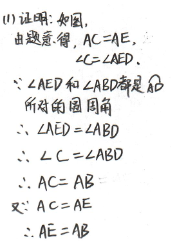 (1) 证明:如图,
由题意得, AC=AE,
∠C=∠AED.
∵ ∠AED和∠ABD都是AD
所对的圆周角
∴ ∠AED=∠ABD
∴ ∠C=∠ABD
∴ AC=AB
又∵ AC=AE
∴ AE=AB